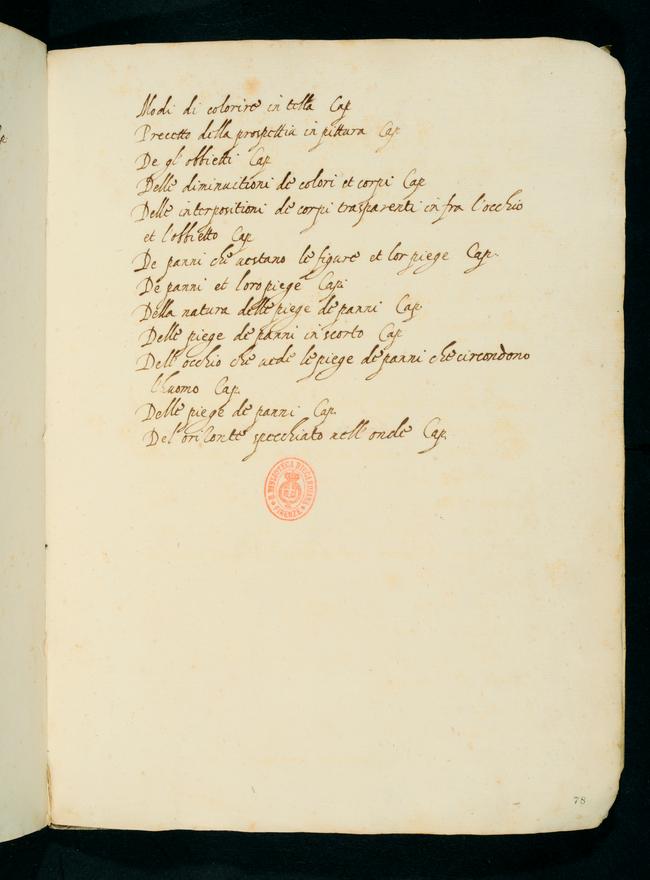 Modi di colorire in tella Cap
Precetto della prospettia in pittura Cap
De gl'obbietti Cap
Delle diminuitioni de colori et corpi Cap
Delle interpositioni de corpi trasparenti in fra l'occhio
et l'obbietto Cap
De panni che uestano le figure et lor piege Cap.
De panni et loro piege Cap:
Della natura delle piege de panni Cap.
Delle piege de panni in scorto Cap.
Dell'occhio che uede le piege de panni che circondono
l'huomo Cap.
Delle piege de panni Cap.
Del'orizonte specchiato nell'onde Cap.
R. BIBLIOTECA RICCARDIANA
FIRENZE
78